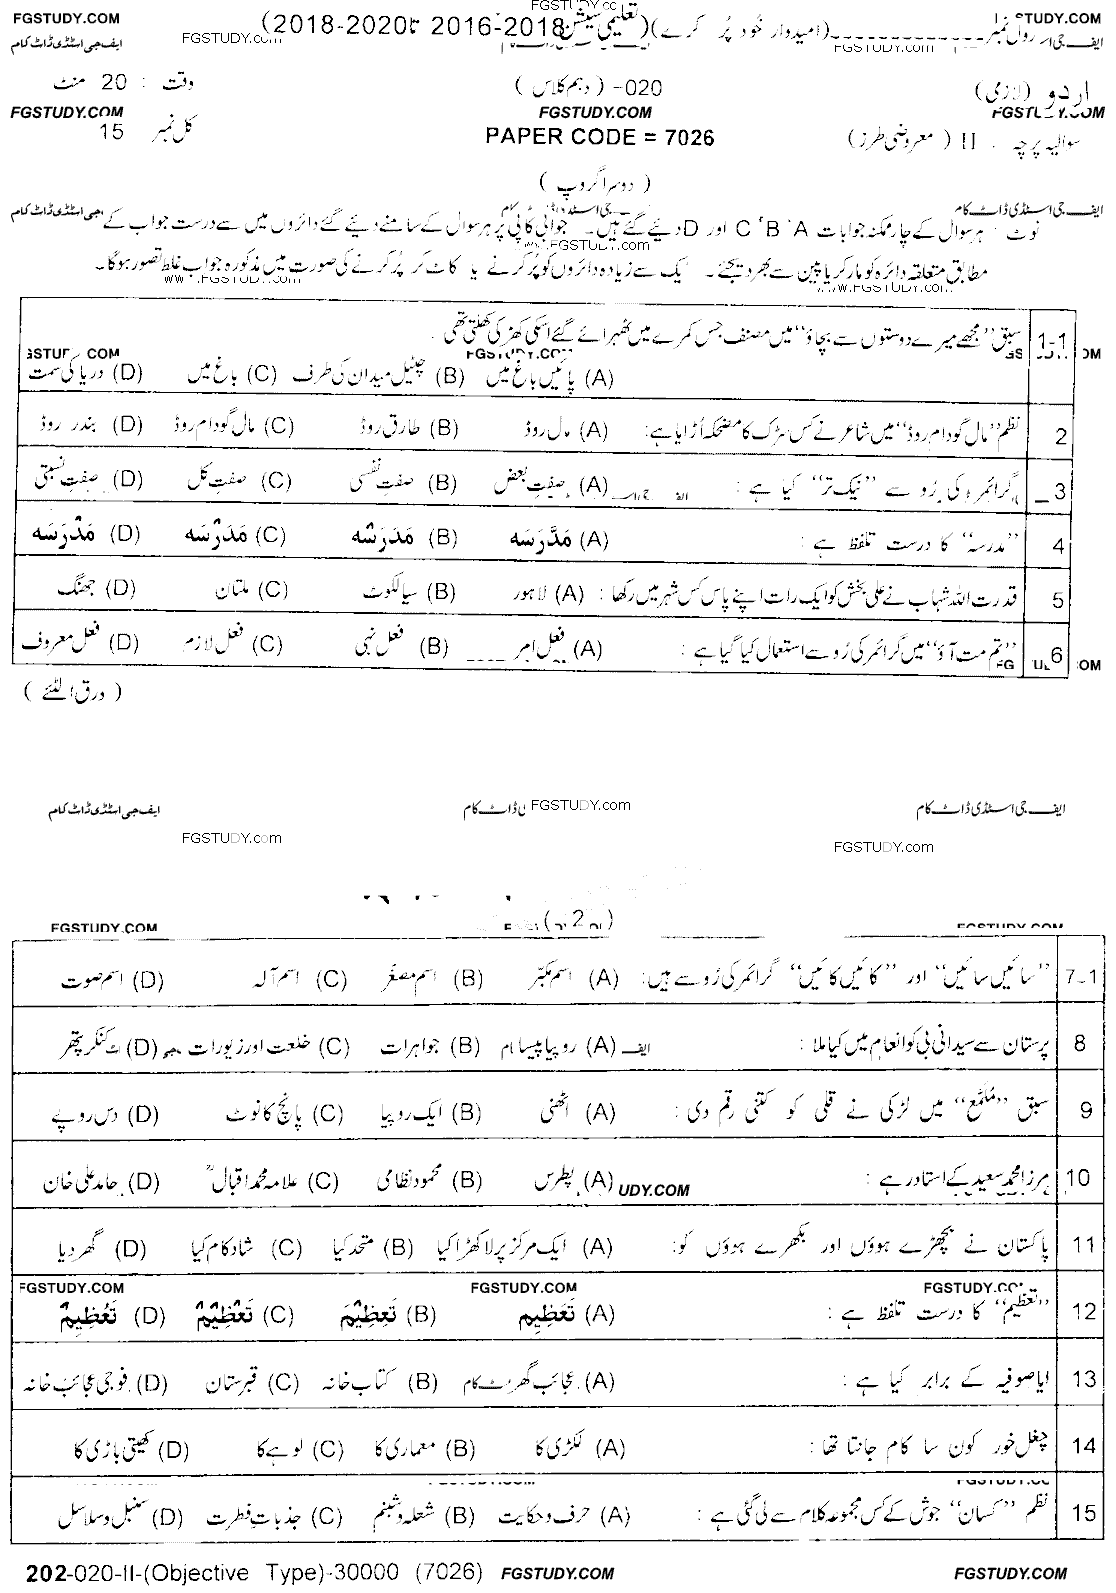 FGSTUDY.COM
ایف جی اسٹڈی ڈاٹ کام
FGSTUDY.com
رول نمبر------------(امیدوار خُود پُر کرے)(تعلیمی سیشن 2016-2018 تا 2018-2020)
اردو (لازمی) 020- (دہم کلاس) وقت : 20 منٹ
FGSTUDY.COM FGSTUDY.COM FGSTUDY.COM
سوالیہ پرچہ : II (معروضی طرز) PAPER CODE = 7026 کل نمبر 15
(دوسرا گروپ)
نوٹ - ہر سوال کے چار ممکنہ جوابات A، B، C اور D دیئے گئے ہیں۔ جوابی کاپی پر ہر سوال کے سامنے دیئے گئے دائروں میں سے درست جواب کے
مطابق متعلقہ دائرہ کو مارکر یا پین سے بھر دیجئے۔ ایک سے زیادہ دائروں کو پُر کرنے یا کاٹ کر پُر کرنے کی صورت میں مذکورہ جواب غلط تصور ہوگا۔
1-1 سبق "مجھے میرے دوستوں سے بچاؤ" میں مصنف جس کمرے میں ٹھہرائے گئے اسکی کھڑکی کھلتی تھی
(A) پائیں باغ میں (B) چٹیل میدان کی طرف (C) باغ میں (D) دریا کی سمت
2 نظم "مال گودام روڈ" میں شاعر نے کس سڑک کا مضحکہ اُڑایا ہے: (A) مال روڈ (B) طارق روڈ (C) مال گودام روڈ (D) بندر روڈ
3 گرائمر کی رُو سے "نیک تر" کیا ہے : (A) صفتِ بعض (B) صفت نفسی (C) صفتِ کل (D) صفتِ نسبتی
4 "مدرسہ" کا درست تلفظ ہے : (A) مَدَّرَسَه (B) مَدَرَسْه (C) مَدَرْسَه (D) مَدْرَسَه
5 قدرت اللہ شہاب نے علی بخش کو ایک رات اپنے پاس کس شہر میں رکھا : (A) لاہور (B) سیالکوٹ (C) ملتان (D) جھنگ
6 "تم مت آؤ" میں گرائمر کی رُو سے استعمال کیا گیا ہے : (A) فعل امر (B) فعل نہی (C) فعل لازم (D) فعل معروف
(ورق الٹئے)
ایف جی اسٹڈی ڈاٹ کام FGSTUDY.com ایف جی اسٹڈی ڈاٹ کام
FGSTUDY.com FGSTUDY.com
FGSTUDY.COM (2)
7-1 "سائیں سائیں" اور "کائیں کائیں" گرائمر کی رُو سے ہیں: (A) اسم مکبّر (B) اسم مصغّر (C) اسم آلہ (D) اسم صوت
8 پرستان سے سیدانی بی کو انعام میں کیا ملا : (A) روپیا پیسا (B) جواہرات (C) خلعت اور زیورات (D) کنکر پتھر
9 سبق "مُلمّع" میں لڑکی نے قلی کو کتنی رقم دی : (A) اٹھنی (B) ایک روپیا (C) پانچ کا نوٹ (D) دس روپے
10 مرزا محمد سعید کے استاد رہے : (A) پطرس (B) محمود نظامی (C) علامہ محمد اقبالؒ (D) حامد علی خان
11 پاکستان نے بچھڑے ہوؤں اور بکھرے ہوؤں کو: (A) ایک مرکز پر لا کھڑا کیا (B) متحد کیا (C) شادکام کیا (D) گھر دیا
FGSTUDY.COM FGSTUDY.COM
12 "تعظیم" کا درست تلفظ ہے : (A) تَعَظِیِم (B) تَعِظِیْمَ (C) تَعْظِیْمْ (D) تَعُظِیِمْ
13 ایاصوفیہ کے برابر کیا ہے : (A) عجائب گھر (B) کتاب خانہ (C) قبرستان (D) فوجی عجائب خانہ
14 چغل خور کون سا کام جانتا تھا : (A) لکڑی کا (B) معماری کا (C) لوہے کا (D) کھیتی باڑی کا
15 نظم "کسان" جوش کے کس مجموعہ کلام سے لی گئی ہے : (A) حرف و حکایت (B) شعلہ و شبنم (C) جذباتِ فطرت (D) سنبل و سلاسل
202-020-II-(Objective Type)-30000 (7026) FGSTUDY.COM FGSTUDY.COM